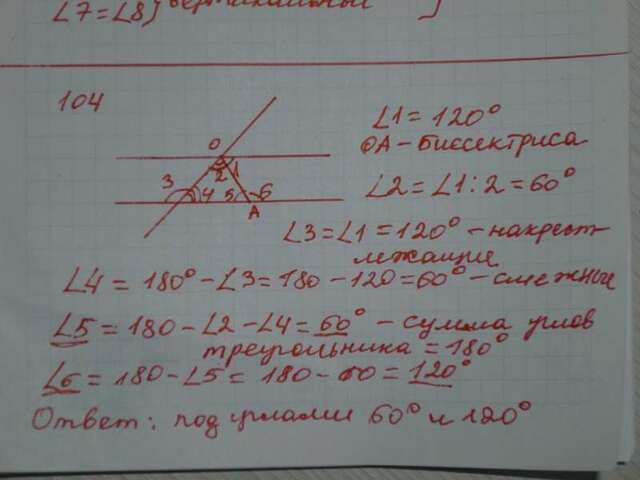 ∠7=∠8} вертикальный
104
∠1=120°
OA-биссектриса
∠2=∠1:2=60°
O
1
2
3
4
5
6
A
∠3=∠1=120°-накрест-
лежащие
∠4=180°-∠3=180-120=60°-смежные
∠5=180-∠2-∠4=60°-сумма углов
треугольника=180°
∠6=180-∠5=180-60=120°
Ответ: под углами 60° и 120°